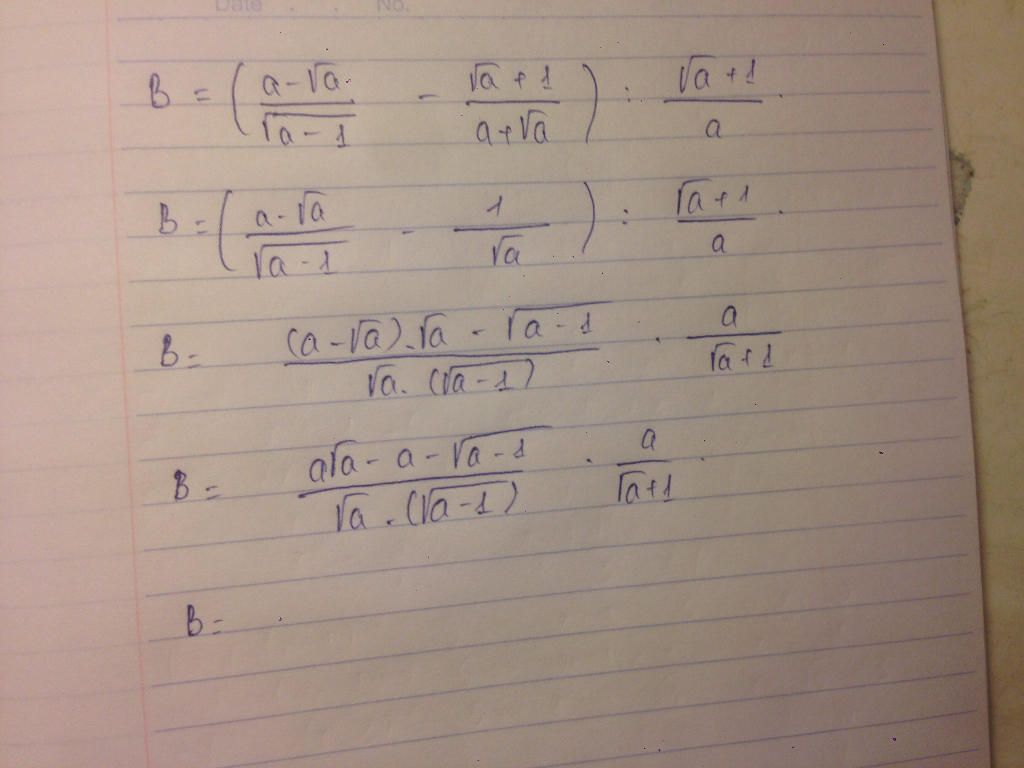 Date . . No.
B = ( (a - √a) / √(a - 1) - (√a + 1) / (a + √a) ) : (√a + 1) / a .
B = ( (a - √a) / √(a - 1) - 1 / √a ) : (√a + 1) / a .
B = ((a - √a) . √a - √(a - 1)) / (√a . (√(a - 1))) . a / (√a + 1)
B = (a√a - a - √(a - 1)) / (√a . (√(a - 1))) . a / (√a + 1) .
B =